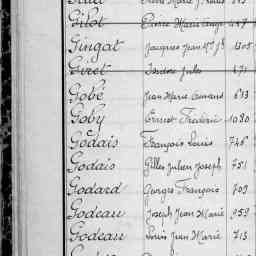 Gilot Pierre Marie
Gingat Jacques Jean Mie Jh 1305
Giret Isidore Jules 671
Gobé Jean Marie Amand 613
Goby Ernest Frédéric 1080
Godais François Louis 746
Godais Gilles Julien Joseph 751
Godard Georges François 703
Godeau Joseph Jean Marie 959
Godeau Louis Jean Marie 713